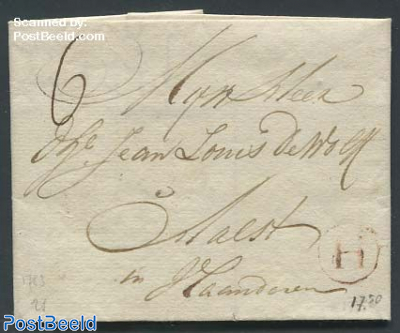 Scanned by
PostBeeld.com
6
Myn Heer
Jean Louis De Wolff
Aalst
H
in Vlaanderen
1780
PostBeeld